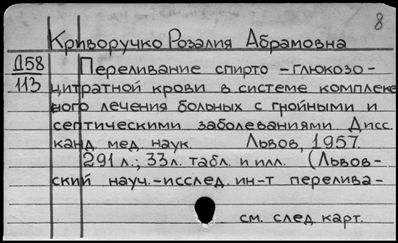 8
Криворучко Розалия Абрамовна
Д58 Переливание спирто-глюкозо-
113 цитратной крови в системе комплекс
ного лечения больных с гнойными и
септическими заболеваниями Дисс.
канд. мед. наук. Львов, 1957.
291 л.; 33 л. табл. и илл. (Львов-
ский науч.-исслед. ин-т перелива-
см. след. карт.